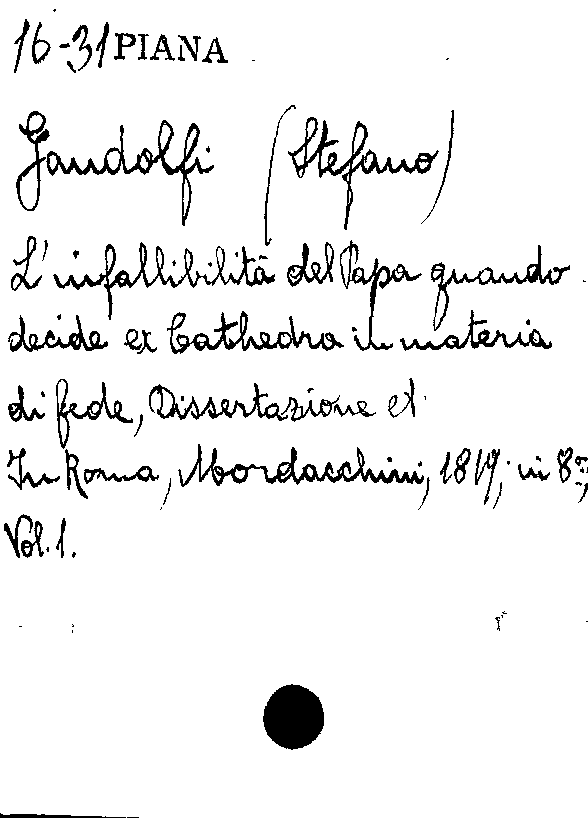 16-31 PIANA
Gandolfi (Stefano)
L'infallibilità del Papa quando
decide ex Cathedra in materia
di fede, Dissertazione et
In Roma, Mordacchini, 1819; in 8°,
Vol. 1.